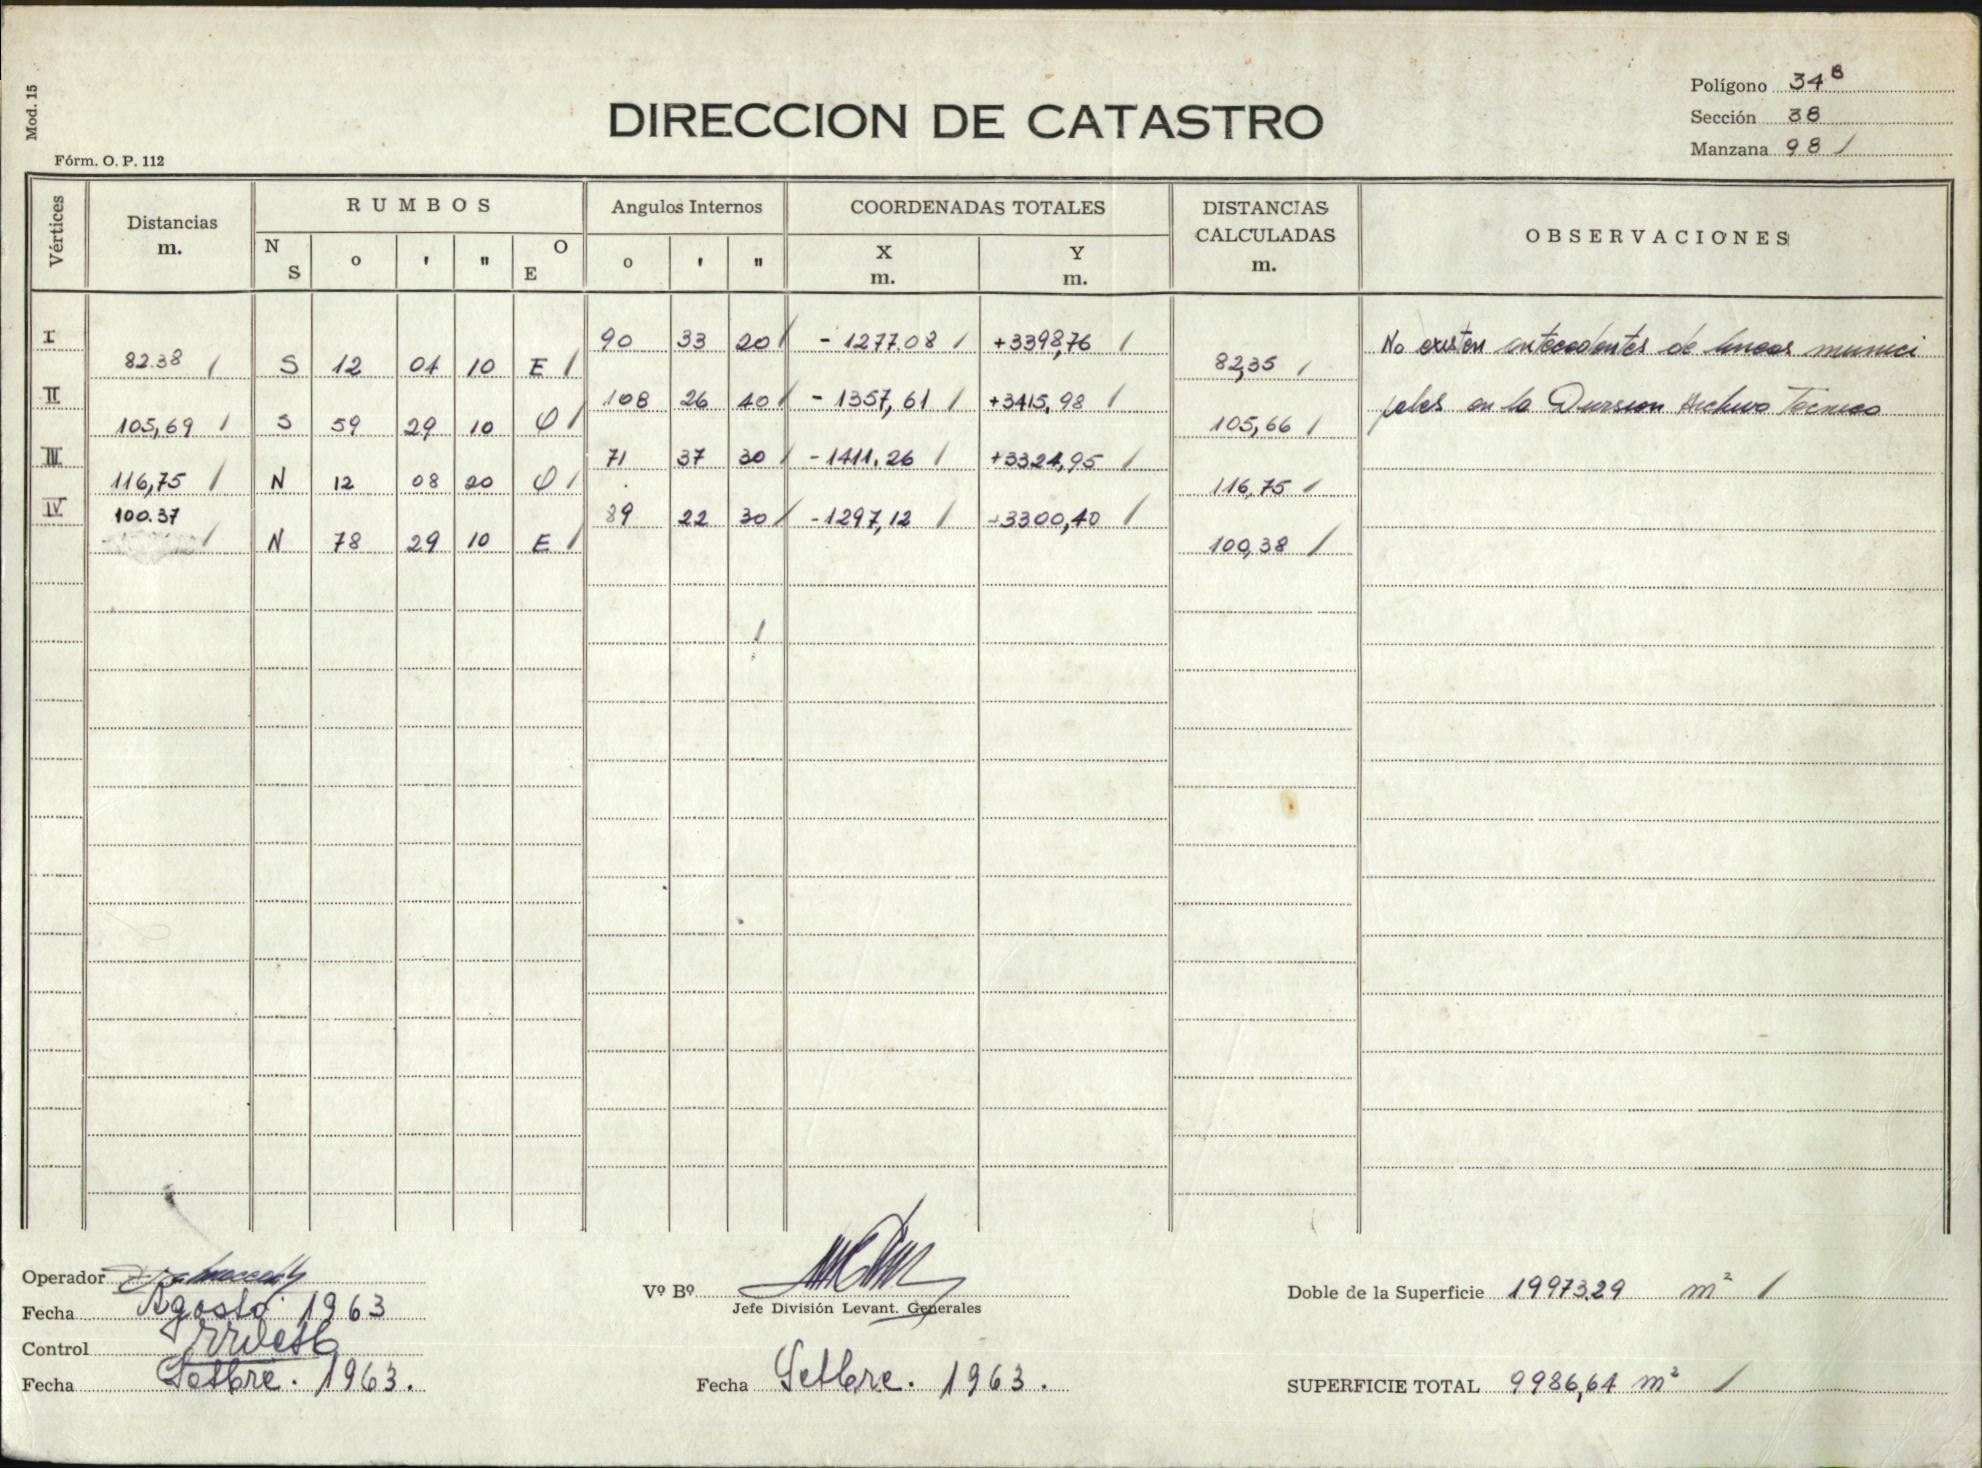 Mod. 15
Fórm. O. P. 112
DIRECCION DE CATASTRO
Polígono 34B
Sección 38
Manzana 98 /
Vértices Distancias m. RUMBOS Angulos Internos COORDENADAS TOTALES DISTANCIAS CALCULADAS m. OBSERVACIONES
N S o ' " O E o ' " X m. Y m.
I 90 33 20 / - 1277.08 / +3398,76 / No existen antecedentes de lineas munici
82.38 / S 12 04 10 E / 82,35 /
II 108 26 40 / - 1357,61 / +3415,98 / pales en la Division Archivo Tecnico
105,69 / S 59 29 10 O / 105,66 /
III 71 37 30 / -1411.26 / +3324,95 /
116,75 / N 12 08 20 O / 116,75 /
IV 89 22 30 / -1297,12 / +3300,40 /
100.37 / N 78 29 10 E / 100,38 /
/
Operador
Fecha Agosto 1963
Control
Fecha Setbre. 1963.
Vº Bº
Jefe División Levant. Generales
Fecha Setbre. 1963.
Doble de la Superficie 19973.29 m² /
SUPERFICIE TOTAL 9986,64 m² /